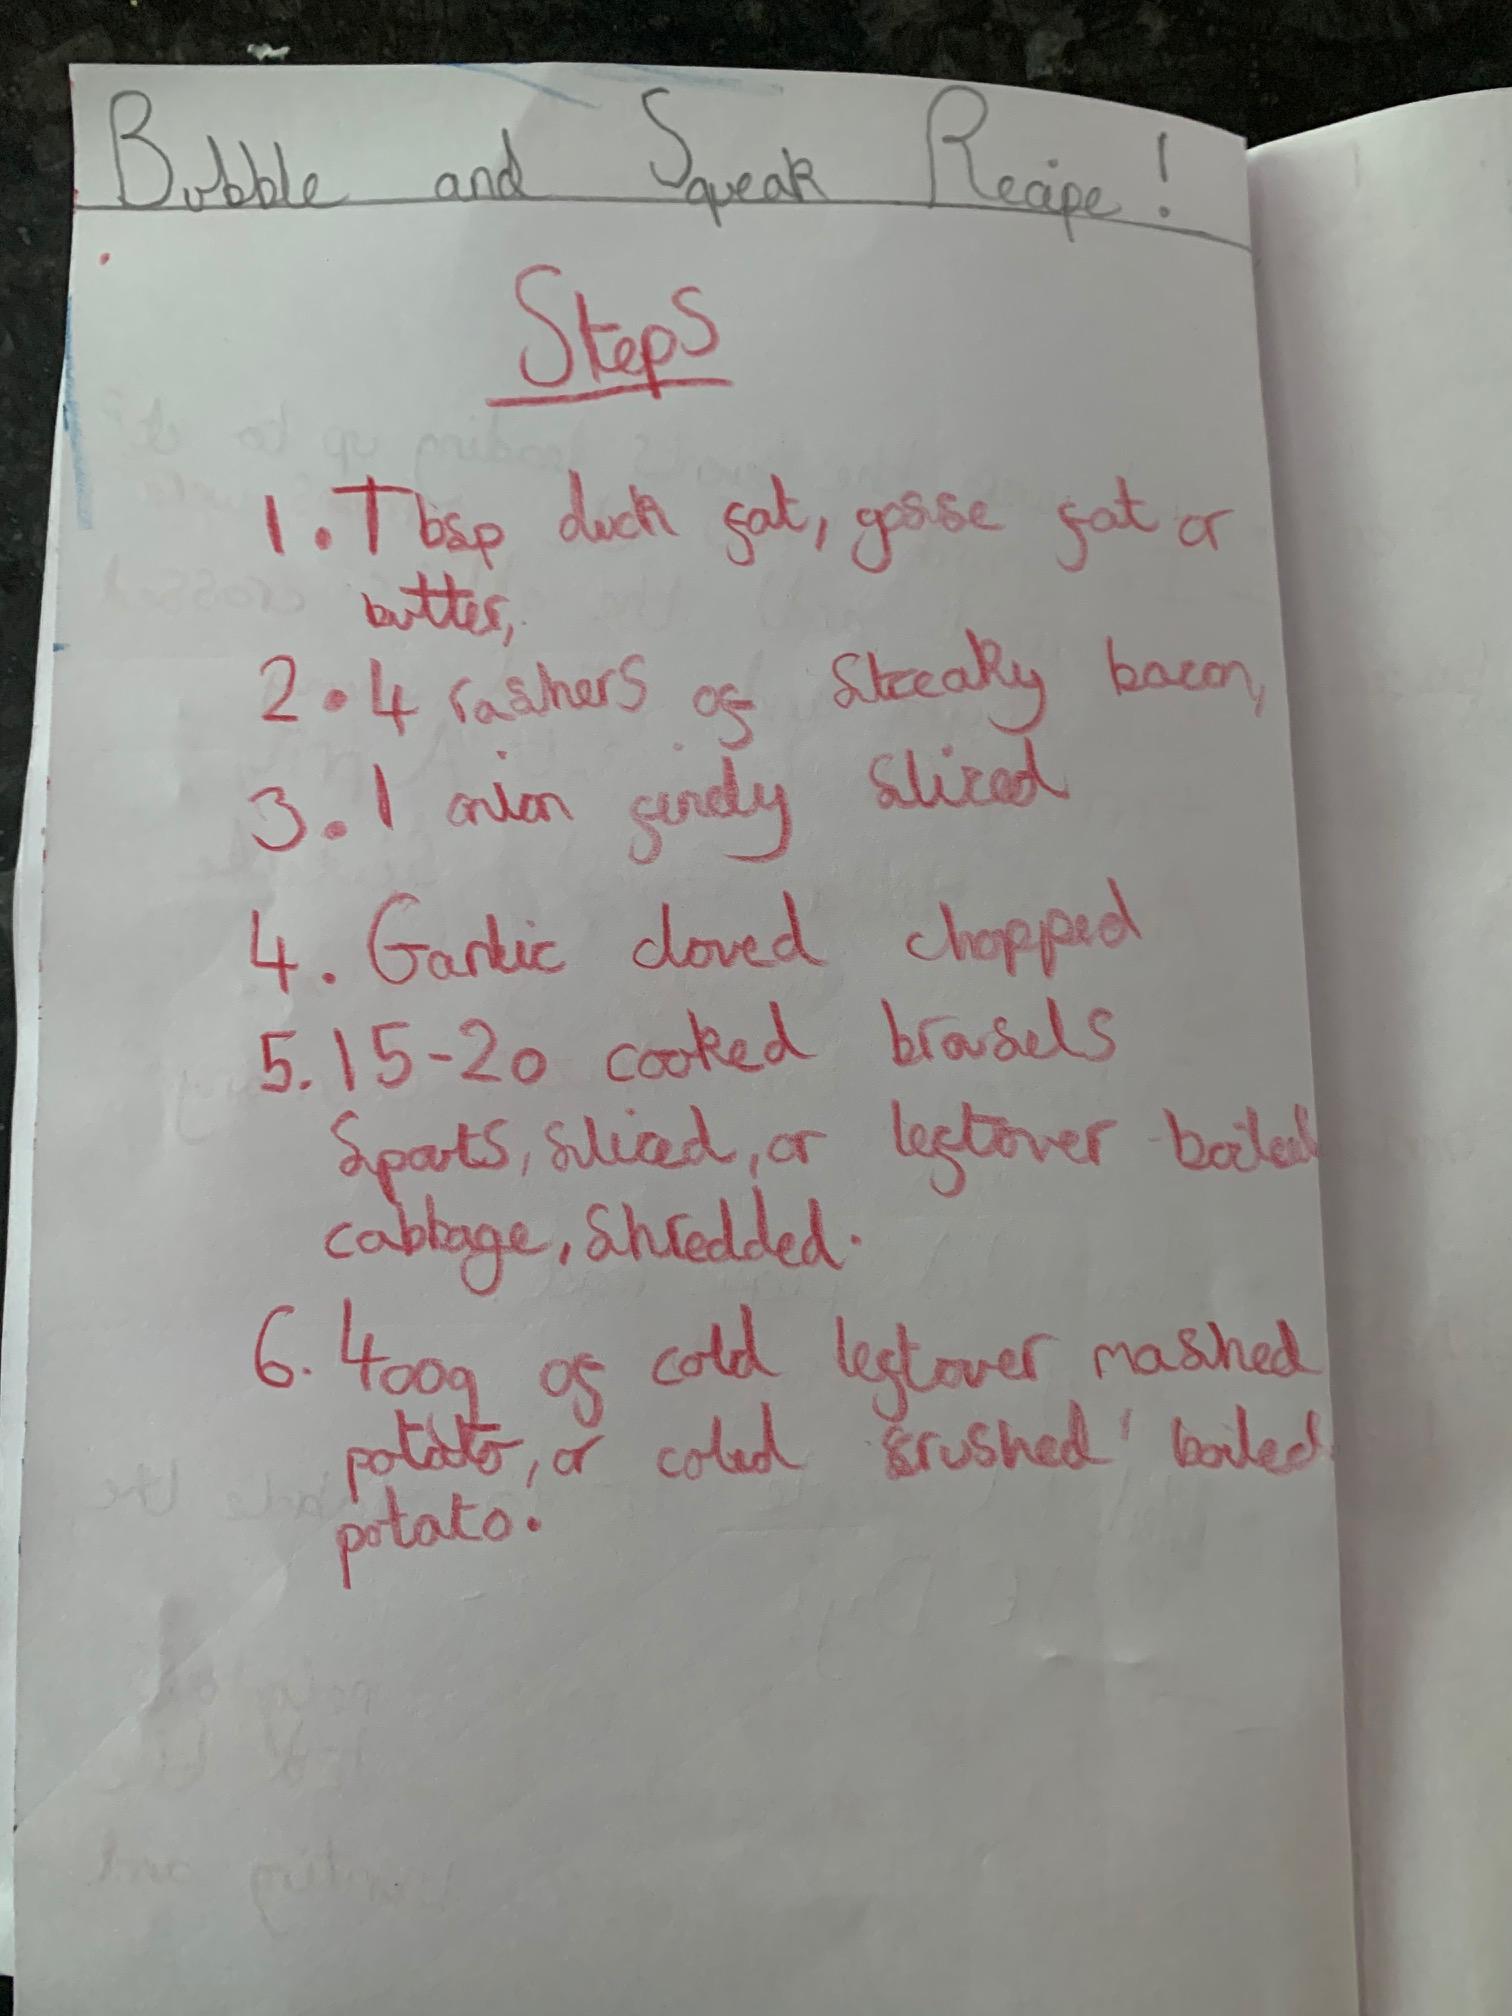 Bubble and Squeak Recipe!
Steps
1. Tbsp duck fat, gosse fat or
butter,
2. 4 rashers of streaky bacon,
3. 1 onion finely sliced
4. Garlic cloved chopped
5. 15-20 cooked brasels
sparts, sliced, or leftover boiled
cabbage, shredded.
6. 400g of cold leftover mashed
potato, or cold crushed boiled
potato.